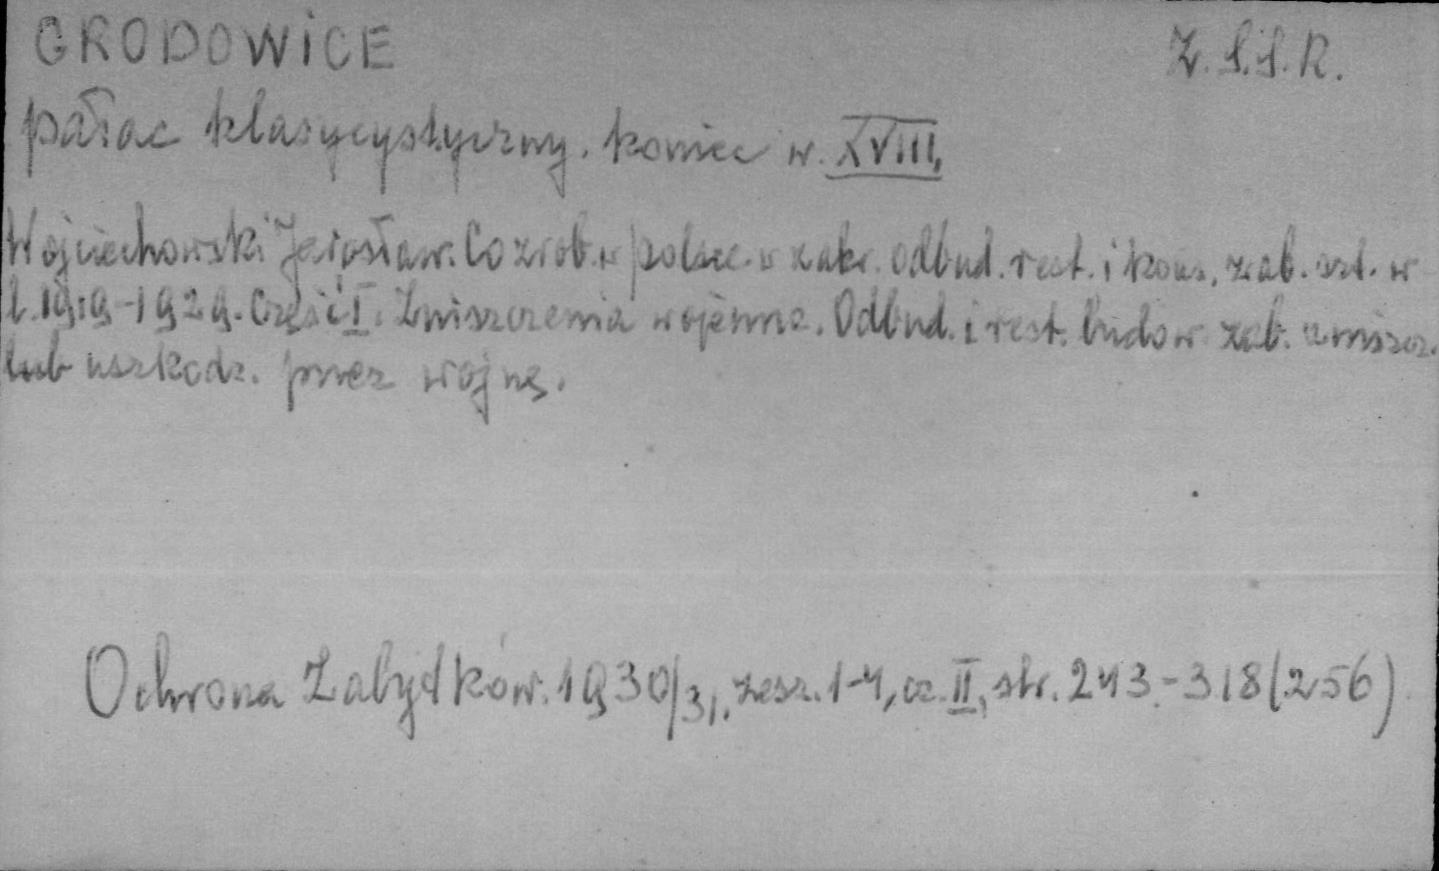 GRODOWICE Z.S.S.R.
pałac klasycystyczny. koniec w. XVIII.
Wojciechowski Jarosław. Co zrob. w Polsce w zakr. odbud. rest. i kons. zab. szt. w
l. 1919-1929. Część I. Zniszczenia wojenne. Odbud. i rest. budow zab. zniszcz.
lub uszkodz. przez wojnę.
Ochrona Zabytków. 1930/31. zesz. 1-4, cz. II, str. 243-318 (256)